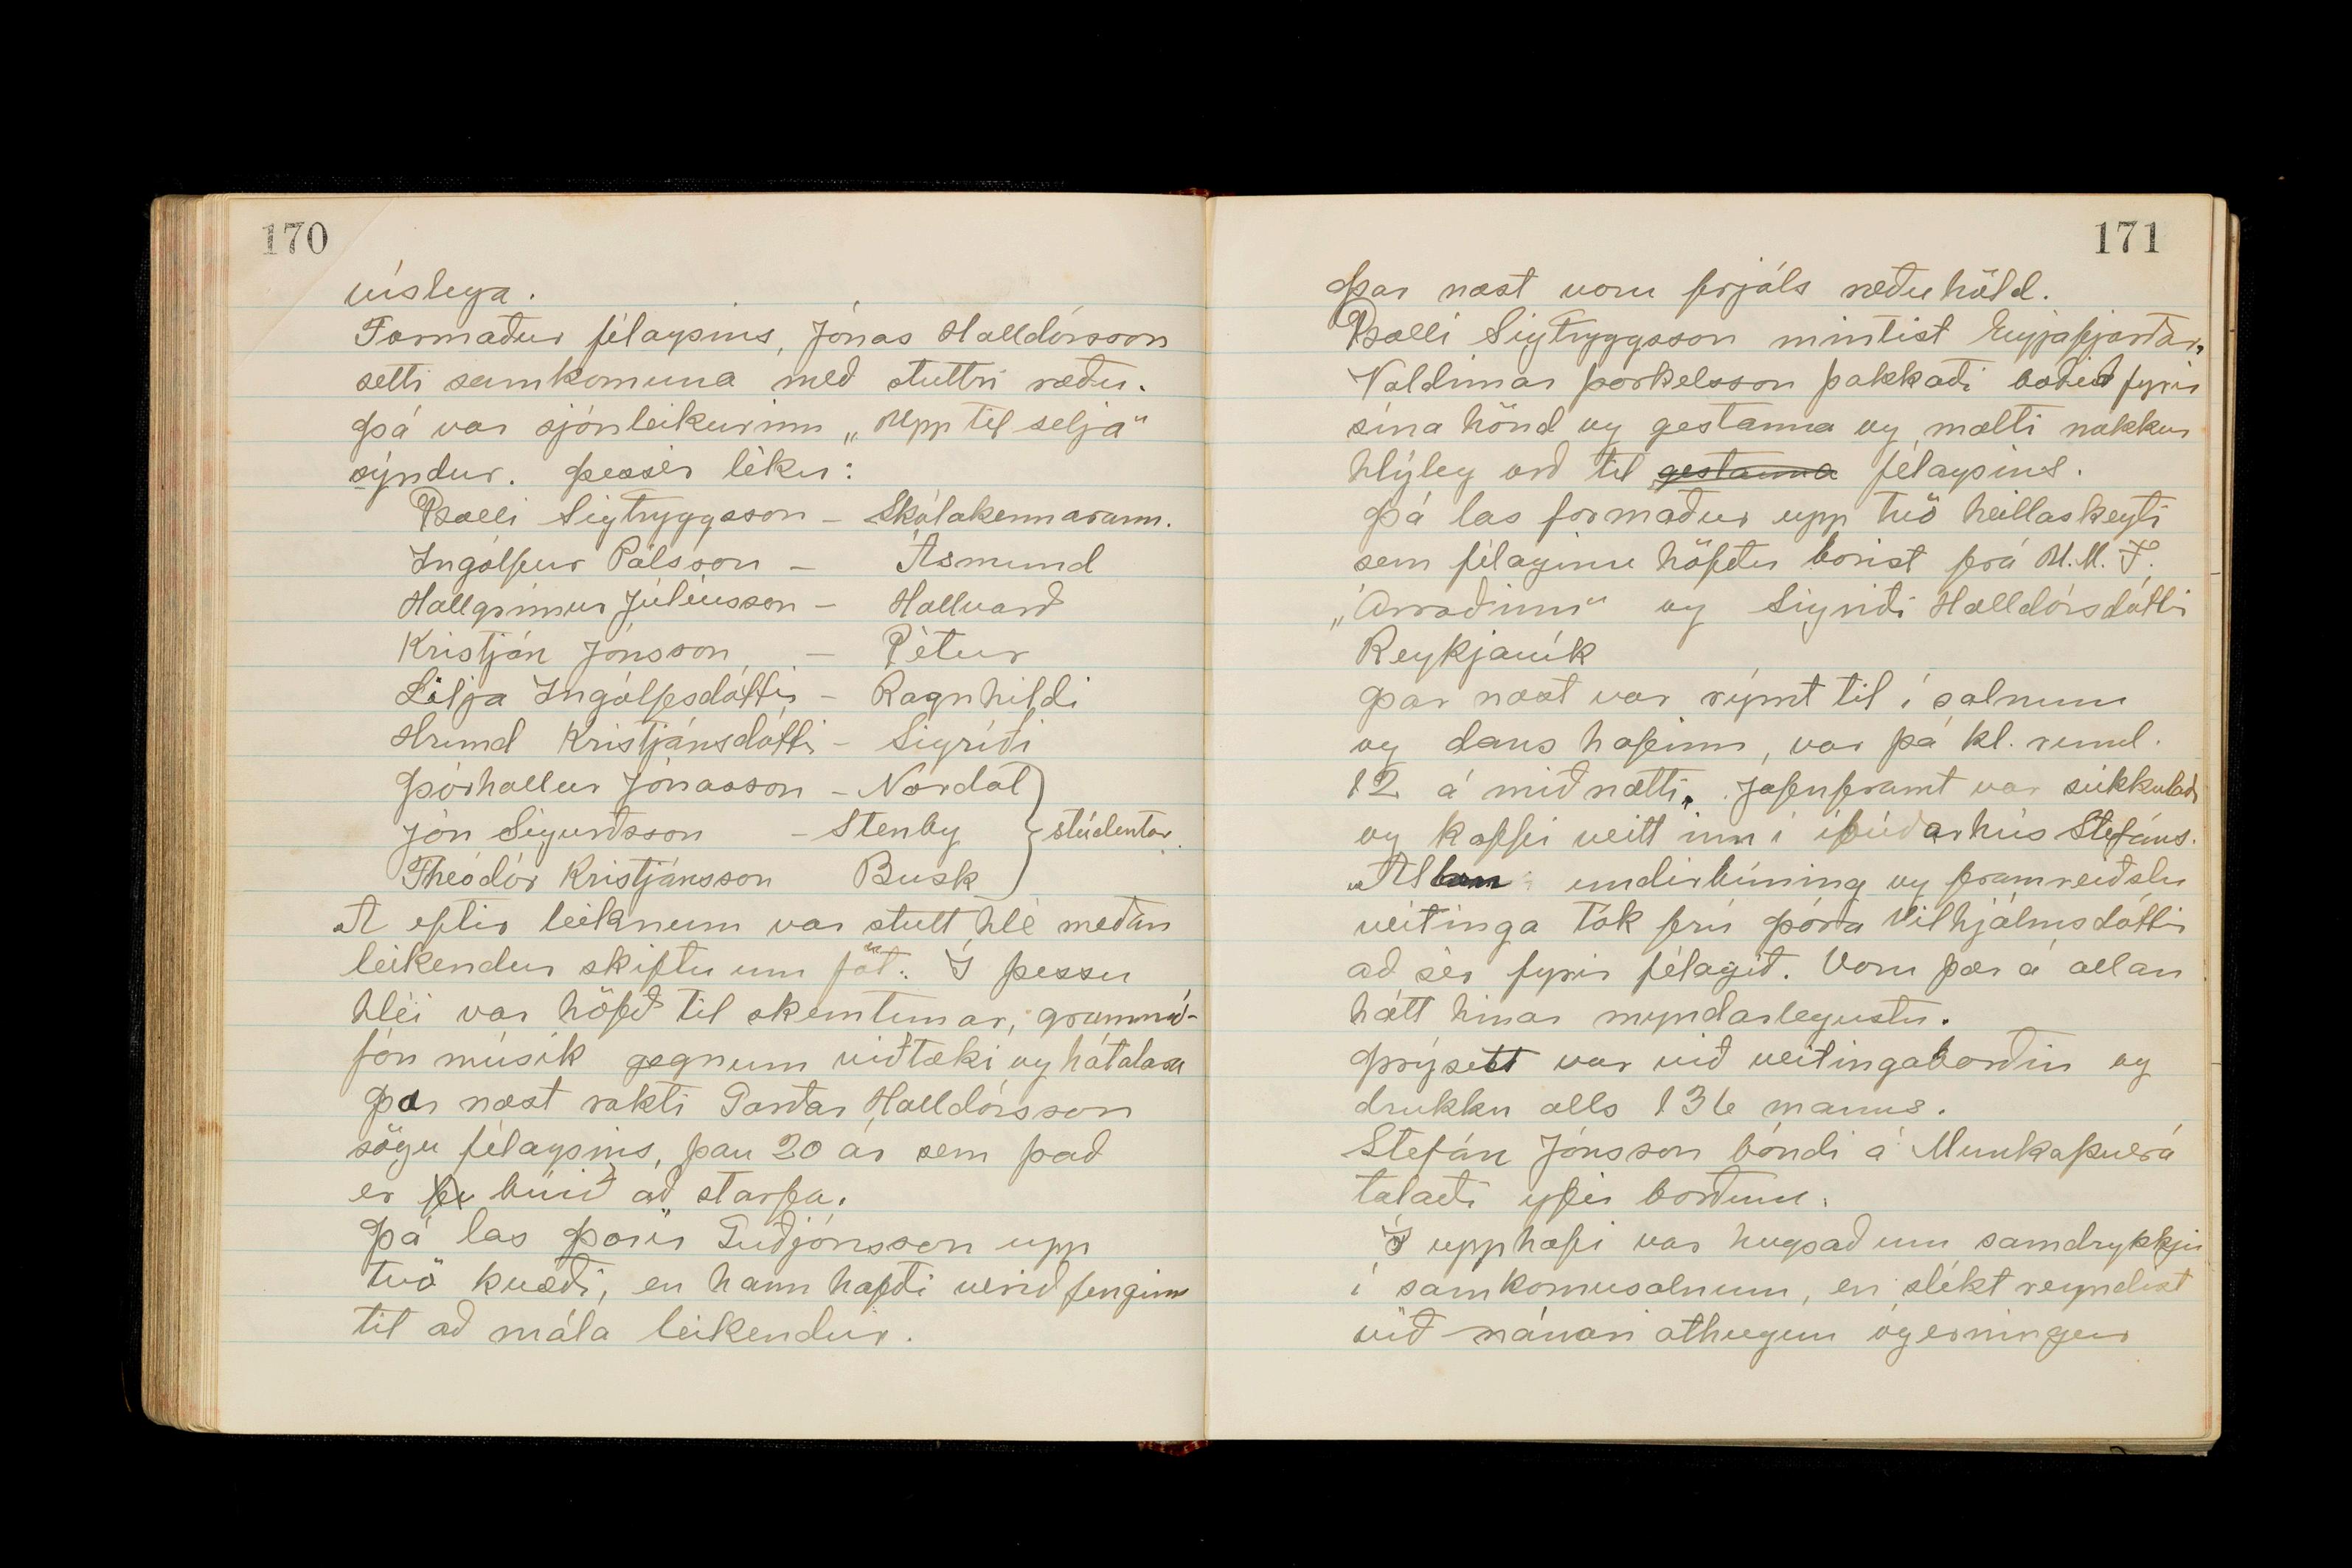 170
víslega.
Formaður félagsins, Jónas Halldórsson
setti samkomuna með stuttri ræðu.
Þá var sjónleikurinn „Upp til selja"
sýndur. Þessir léku:
Bælli Sigtryggsson - Skólakennarann.
Ingólfur Pálsson - Ásmund
Hallgrímur Júlíusson - Hallvarð
Kristján Jónsson - Pétur
Lilja Ingólfsdóttir - Ragnhildi
Hrund Kristjánsdótti - Sigríði
Þórhallur Jónasson - Nordal
Jón Sigurðsson - Stenby } stúdentar.
Theódór Kristjánsson Busk
Á eftir leiknum var stutt hlé meðan
leikendur skiftu um föt. Í þessu
hléi var höfð til skemtunar, grammó-
fón músik gegnum viðtæki og hátalara
Þar næst rakti Garðar Halldórsson
sögu félagsins, þau 20 ár sem það
er búið að starfa.
Þá las Þorir Guðjónsson upp
tvö kvæði, en hann hafði verið fenginn
til að mála leikendur.
171
Þar næst voru frjáls ræðuhöld.
Bælli Sigtryggsson mintist Eyjafjarðar,
Valdimar Þorkelsson þakkaði boðið fyrir
sína hönd og gestanna og mælti nokkur
hlýleg orð til gestanna félagsins.
Þá las formaður upp tvö heillaskeyti
sem félaginu höfðu borist frá U.M.F.
„Árroðinn" og Sigríði Halldórsdóttir
Reykjavík
Þar næst var rýmt til í salnum
og dans hafinn, var þá kl. rúml.
12 á miðnætti. Jafnframt var súkkulaði
og kaffi veitt inn í íbúðarhús Stefáns.
Allan undirbúning og framreiðslu
veitinga tók frú Þóra Vilhjálmsdóttir
að sér fyrir félagið. Voru þær á allan
hátt hinar myndarlegustu.
Þrýsett var við veitingaborðin og
drukku alls 136 manns.
Stefán Jónsson bóndi á Munkaþverá
talaði yfir borðum.
Í upphafi var hugsað um samdrykkju
í samkomusalnum, en slíkt reyndist
við nánari athugun ógerningur